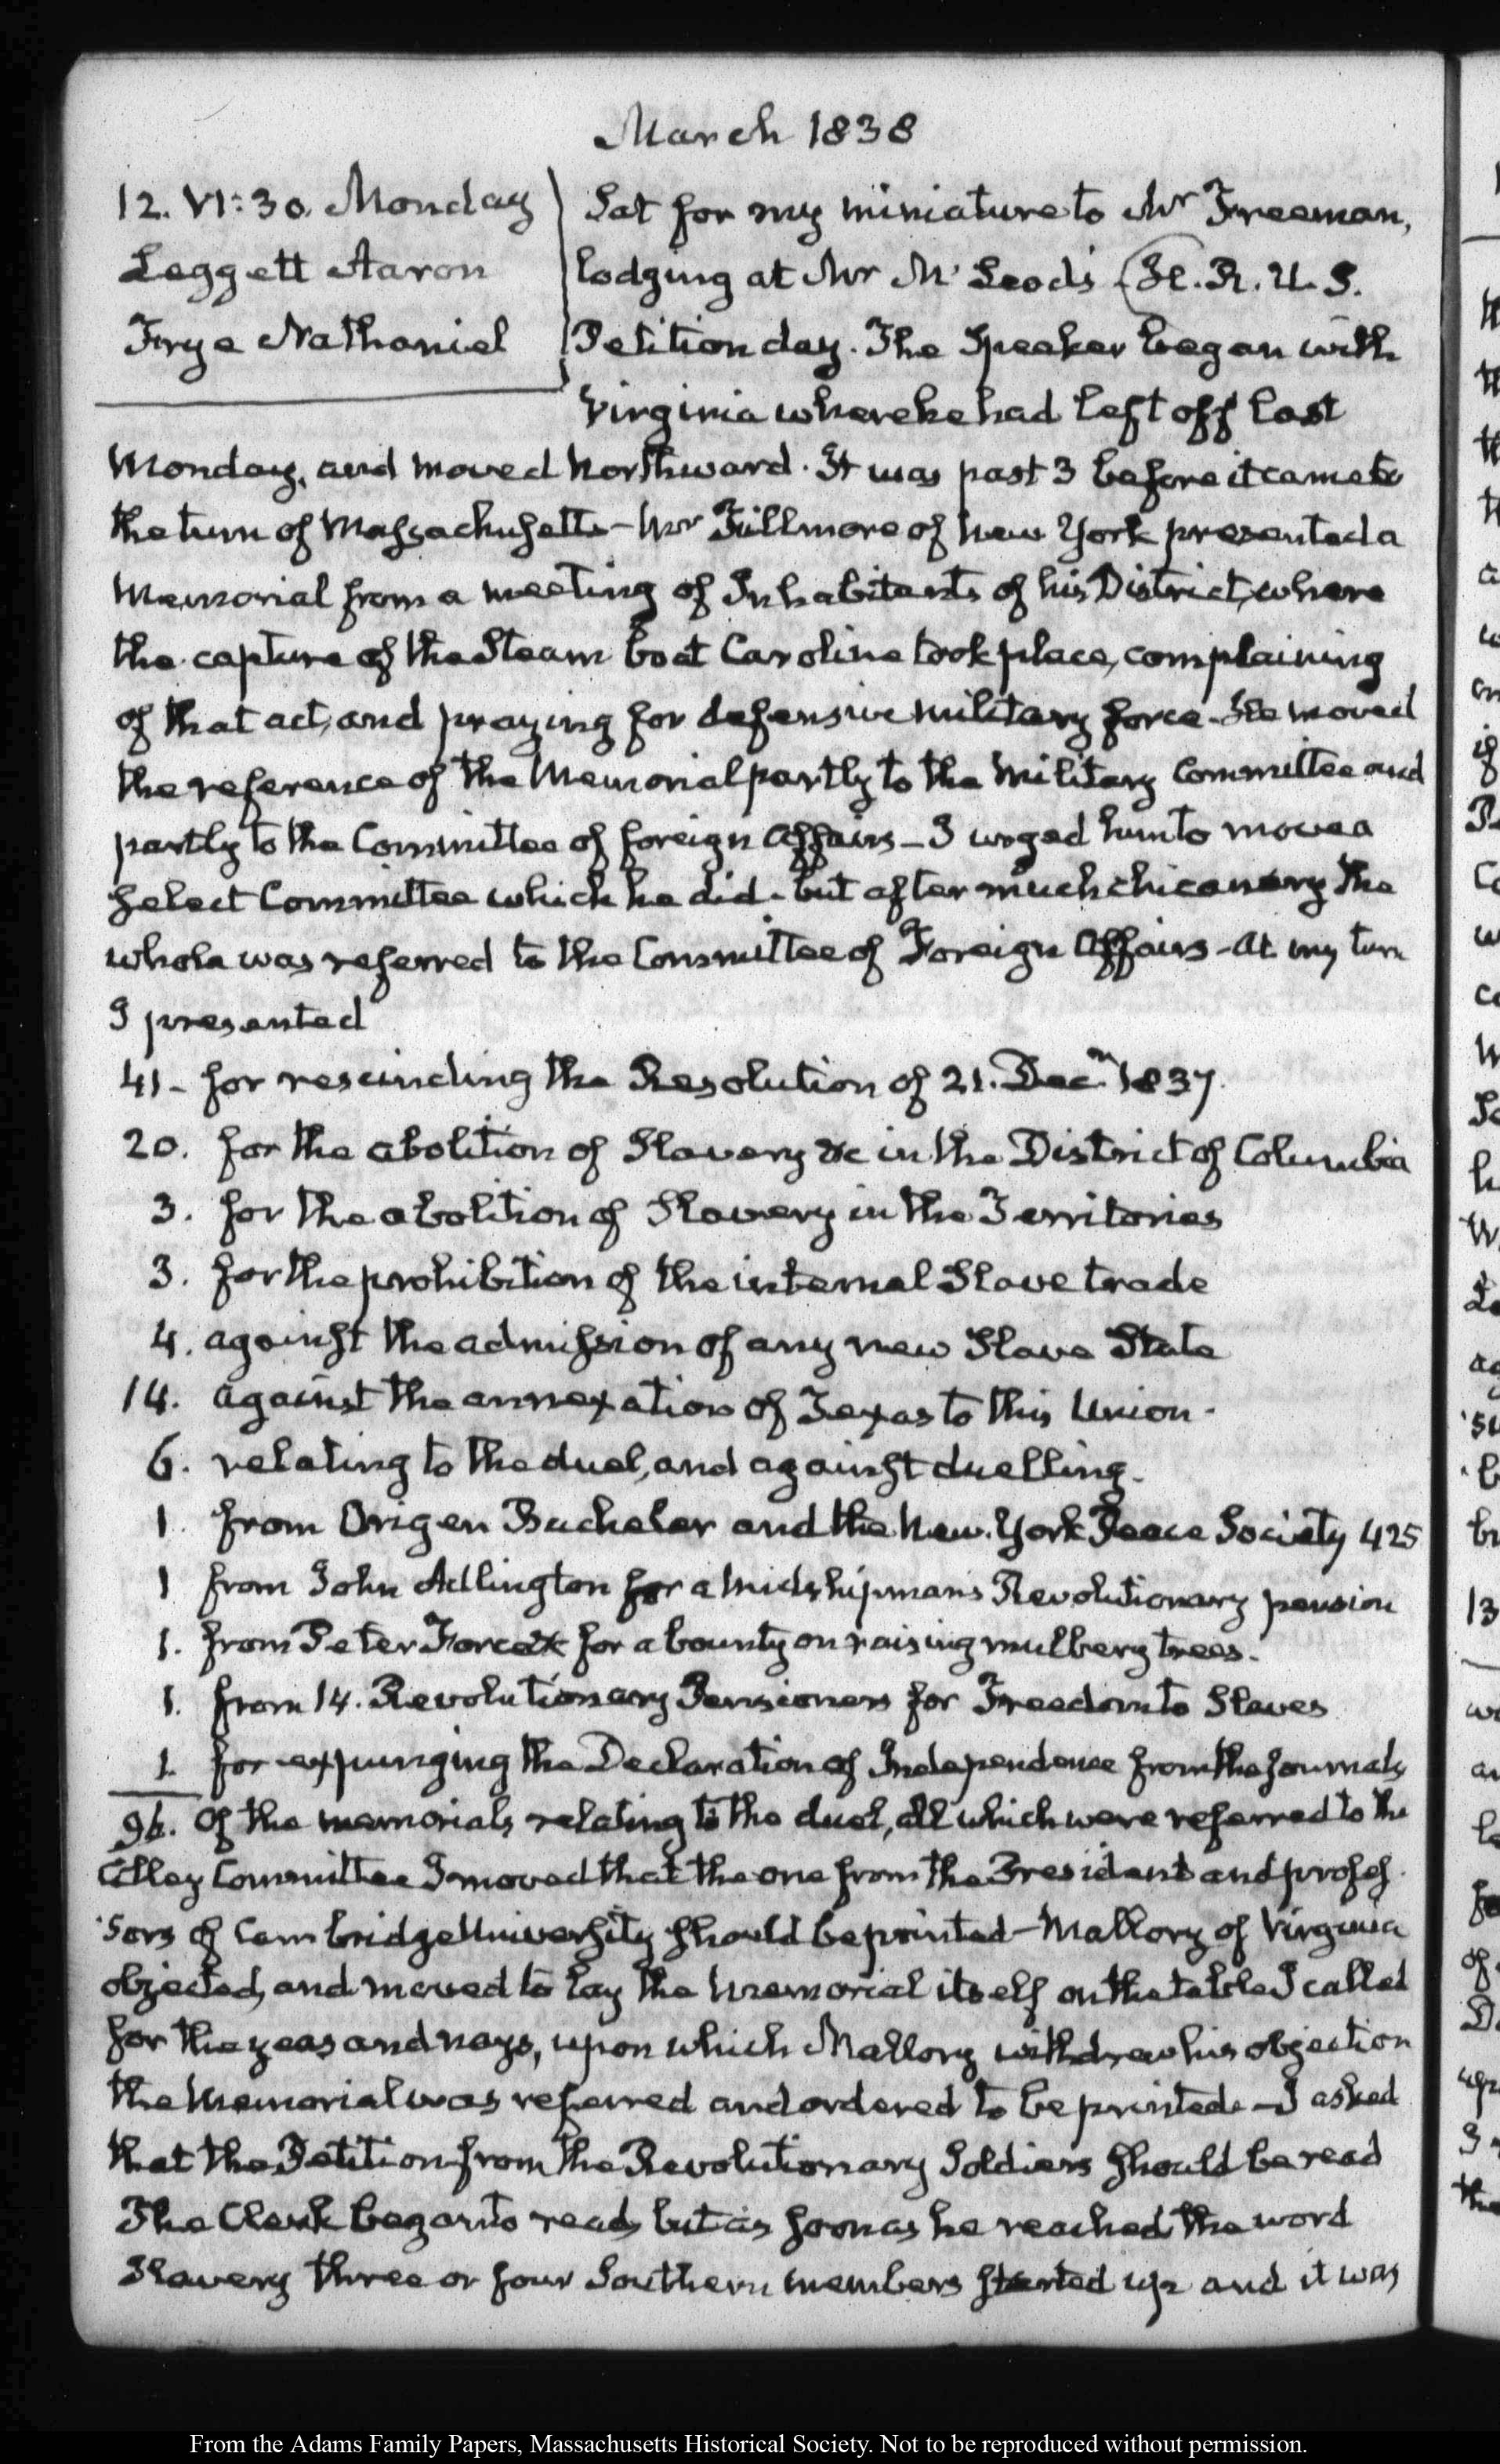 March 1838
12. VI:30. Monday
Leggett Aaron
Frye Nathaniel
Sat for my miniature to Mr Freeman,
lodging at Mr McLeod's (H. R. U. S.
Petition day. The Speaker began with
Virginia where he had left off last
Monday, and moved Northward. It was past 3 before it came to
the turn of Massachusetts – Mr Fillmore of New York presented a
Memorial from a meeting of Inhabitants of his District, where
the capture of the Steam boat Caroline took place, complaining
of that act, and praying for defensive military force. He moved
the reference of the Memorial partly to the Military Committee and
partly to the Committee of foreign Affairs – I urged him to move a
select Committee which he did – but after much chicanery the
whole was referred to the Committee of Foreign Affairs – At my turn
I presented
41 – for rescinding the Resolution of 21. Decr 1837.
20. for the abolition of Slavery &c in the District of Columbia
3. for the abolition of Slavery in the Territories
3. for the prohibition of the internal Slave trade
4. against the admission of any new Slave State
14. against the annexation of Texas to this Union.
6. relating to the duel, and against duelling.
1. from Origen Bacheler and the New. York Peace Society 425
1 from John Adlington for a Midshipman's Revolutionary pension
1. from Peter Force &c for a bounty on raising mulbery trees.
1. from 14. Revolutionary Pensioners for Freedom to Slaves
1. for expunging the Declaration of Independence from the Journals
96. Of the memorials relating to the duel, all which were referred to the
Cilley Committee I moved that the one from the President and profes
sors of Cambridge University should be printed – Mallory of Virginia
objected, and moved to lay the memorial itself on the table I called
for the yeas and nays, upon which Mallory withdrew his objection
the Memorial was referred and ordered to be printed – I asked
that the Petition from the Revolutionary Soldiers should be read
The Clerk began to read, but as soon as he reached the word
Slavery three or four Southern members started up and it was
From the Adams Family Papers, Massachusetts Historical Society. Not to be reproduced without permission.